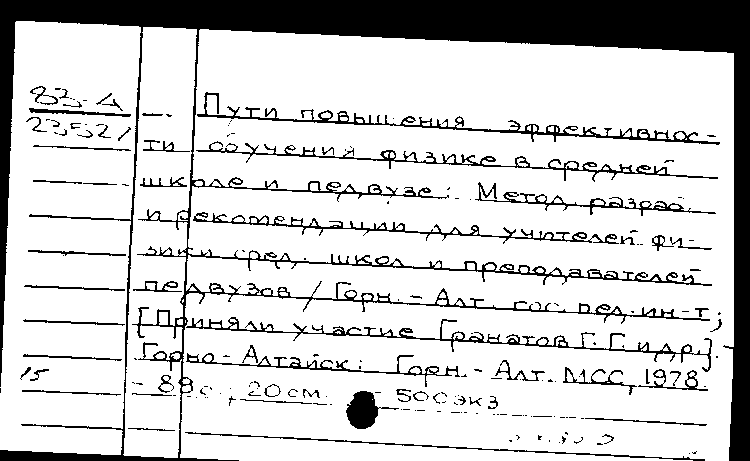 83-А
23527
Пути повышения эффективнос-
ти обучения физике в средней
школе и педвузе: Метод. разраб.
и рекомендации для учителей фи-
зики сред. школ и преподавателей
педвузов / Горн.-Алт. гос. пед. ин-т;
[Приняли участие Гранатов Г. Г. и др.]. -
Горно-Алтайск: Горн.-Алт. МСС, 1978.
15
- 88 с.; 20 см. 500 экз